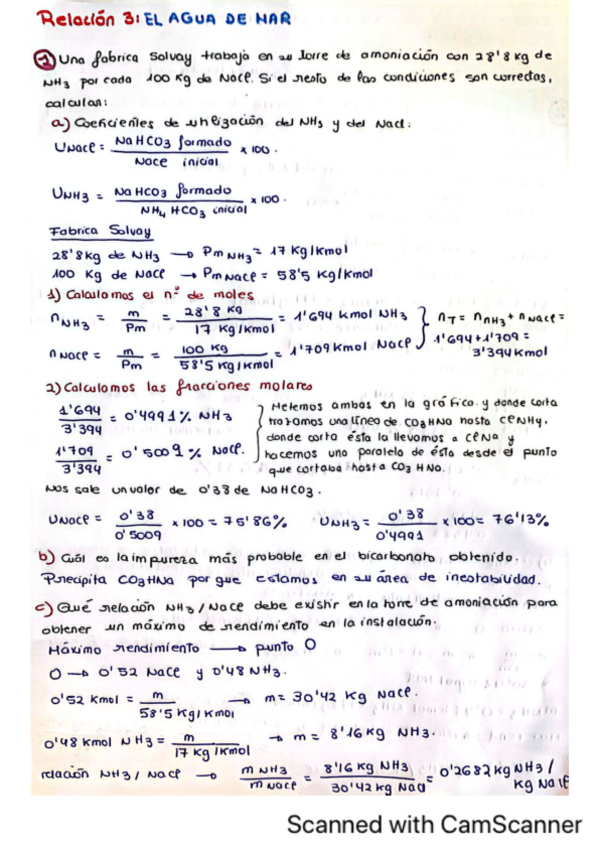 Relación 3: EL AGUA DE MAR
1) Una fabrica Solvay trabaja en su torre de amoniación con 28'8 kg de
NH3 por cada 100 kg de NaCl. Si el resto de las condiciones son correctas,
calcular:
a) Coeficientes de utilización del NH3 y del NaCl:
UNaCl = NaHCO3 formado / NaCl inicial x 100.
UNH3 = NaHCO3 formado / NH4HCO3 inicial x 100.
Fabrica Solvay
28'8 kg de NH3 → PmNH3 = 17 kg/kmol
100 kg de NaCl → PmNaCl = 58'5 kg/kmol
1) Calculamos el nº de moles
nNH3 = m/Pm = 28'8 kg / 17 kg/kmol = 1'694 kmol NH3
nNaCl = m/Pm = 100 kg / 58'5 kg/kmol = 1'709 kmol NaCl
nT = nNH3 + nNaCl =
1'694 + 1'709 =
3'394 kmol
2) Calculamos las fracciones molares
1'694 / 3'394 = 0'4991 % NH3
1'709 / 3'394 = 0'5009 % NaCl.
Metemos ambos en la gráfica y donde corta
trazamos una línea de CO3HNa hasta ClNH4,
donde corta ésta la llevamos a ClNa y
hacemos una paralela de ésta desde el punto
que cortaba hasta CO3HNa.
Nos sale un valor de 0'38 de NaHCO3.
UNaCl = 0'38 / 0'5009 x 100 = 75'86% UNH3 = 0'38 / 0'4991 x 100 = 76'13%
b) Cuál es la impureza más probable en el bicarbonato obtenido.
Precipita CO3HNa por que estamos en su área de inestabilidad.
c) Qué relación NH3/NaCl debe existir en la torre de amoniación para
obtener un máximo de rendimiento en la instalación.
Máximo rendimiento → punto O
O → 0'52 NaCl y 0'48 NH3.
0'52 kmol = m / 58'5 kg/kmol → m = 30'42 kg NaCl.
0'48 kmol NH3 = m / 17 kg/kmol → m = 8'16 kg NH3.
relación NH3/NaCl → m NH3 / m NaCl = 8'16 kg NH3 / 30'42 kg NaCl = 0'2682 kg NH3/
kg NaCl
Scanned with CamScanner